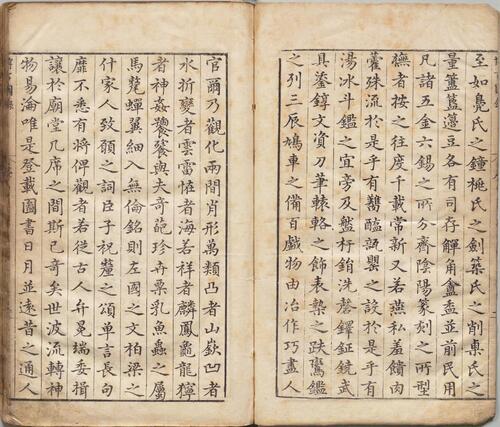 至如鳧氏之鐘桃氏之劍築氏之削㮚氏之
量簠簋籩豆各有司存觶角盦盉並前民用
凡諸五金六錫之所分齊陰陽篆刻之所型
橅者按之往度千載常新又若燕私羞饋肉
藿殊流於是乎有醢瓿罌之設於是乎有
湯冰斗鑑之宜旁及盤杅銷洗磬鐸鉦鐃武
具鍪錞文資刀筆轅輅之飾表槷之趺鸞鑑
之列三辰鳩車之備百戲物由冶作巧盡人
官爾乃觀化兩間肖形萬類凸者山嶽凹者
水折變者雲雷恠者海若祥者麟鳳龜龍獰
者神姦饕餮與夫奇葩珍卉粟乳魚蟲之屬
馬蟬翼細入無倫銘則左國之文柏梁之
什家人致頤之詞臣子祝釐之頌單言長句
靡不悉有將俾觀者若從古人弁冕端委揖
讓於廟堂几席之間斯已奇矣世波流轉神
物易淪唯是登載圖書日月並遠昔之通人